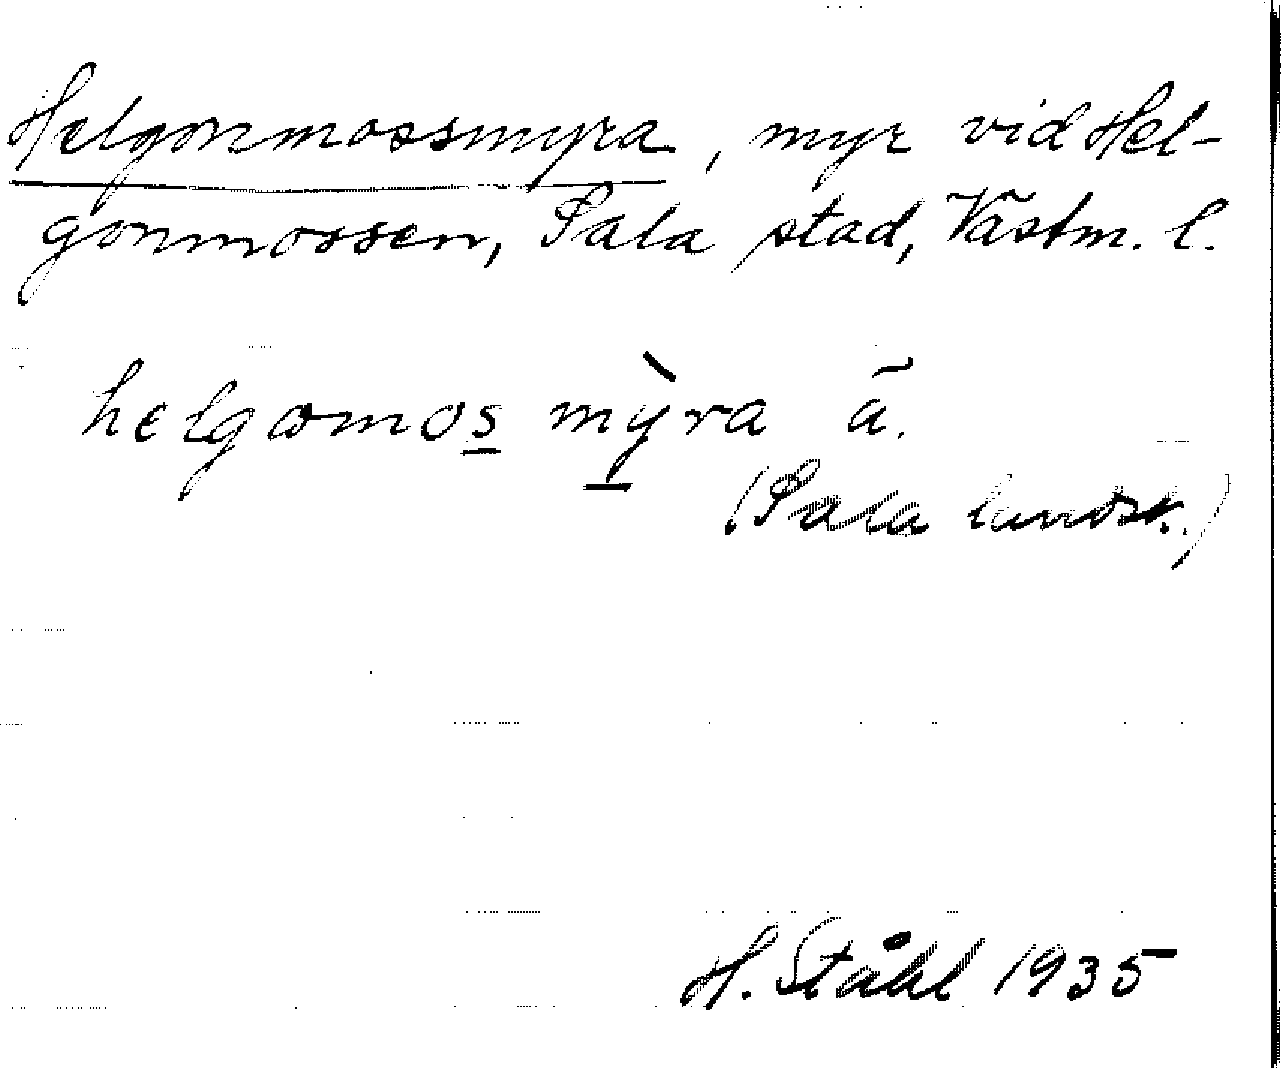 Helgonmossmyra, myr vid Hel-
gonmossen, Sala stad, Västm. l.
helgωmos mỳra ā.
(Sala landsk.)
H. Ståhl 1935